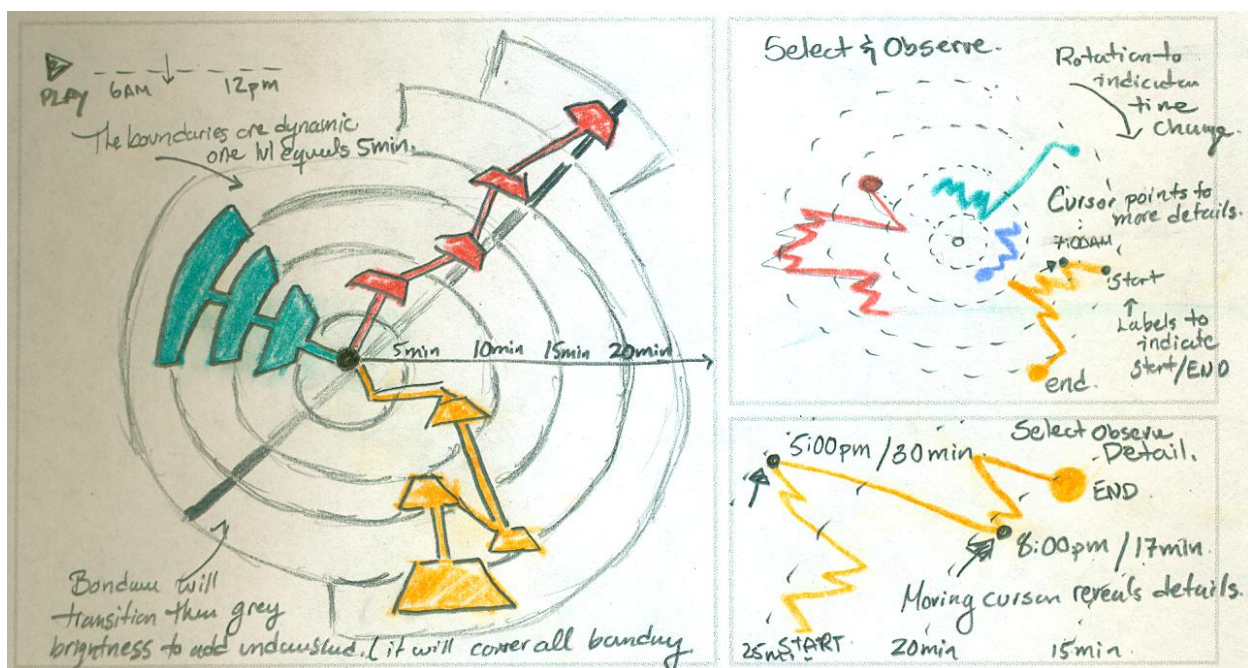 PLAY
6AM
12pm
The boundaries are dynamic
one lvl equals 5min.
5min
10min
15min
20min
will
transition
grey
brightness to add it will cover all
Select & Observe.
Rotation to
time
change.
Cursor points to
more details.
7:00AM
Start
Labels to
indicate
Start/END
end.
Select Observe
Detail.
5:00pm /30min
END
8:00pm /17min.
Moving cursor reveals details.
START.
20min
15min